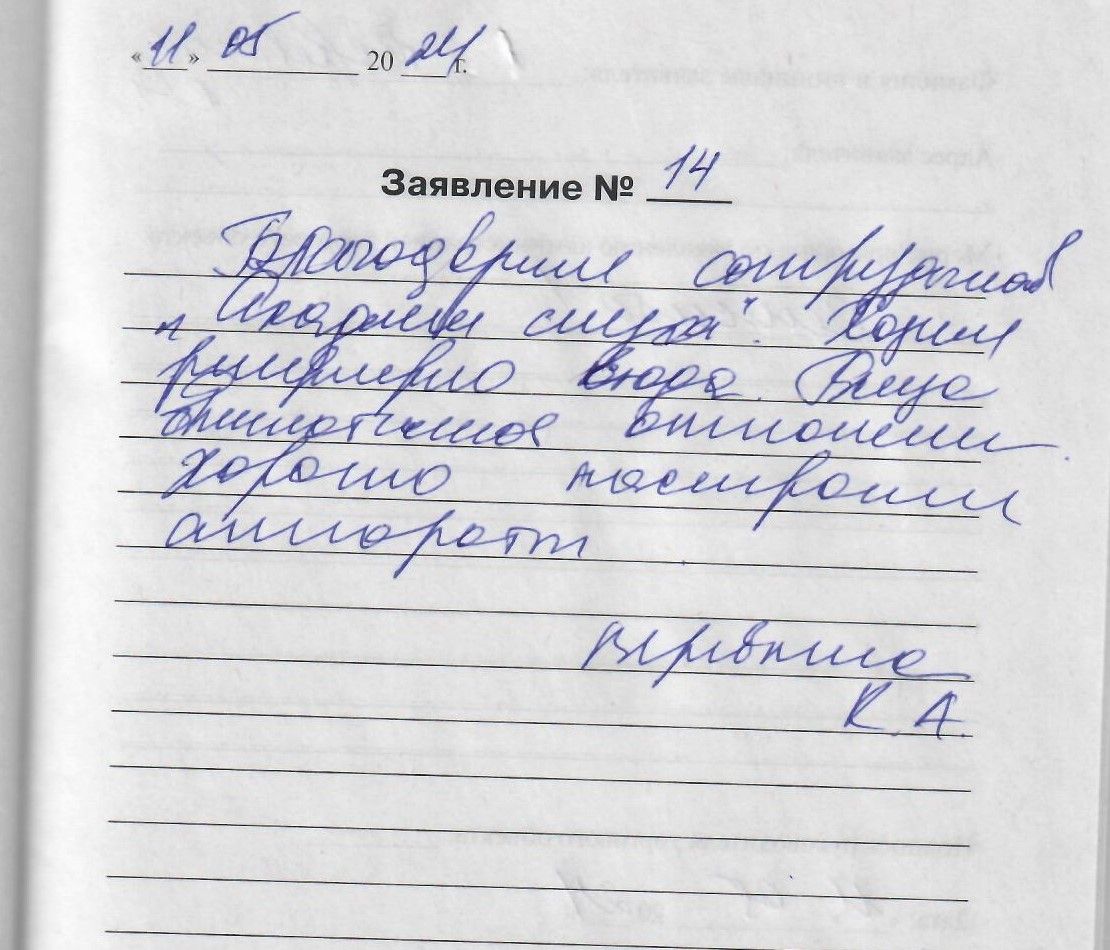 «11» 05 2024 г.
Заявление № 14
Благодарим сотрудников
"Академии слуха". Ходим
регулярно сюда. Всегда
внимательное отношение.
Хорошо настроили
аппараты.
К. А.